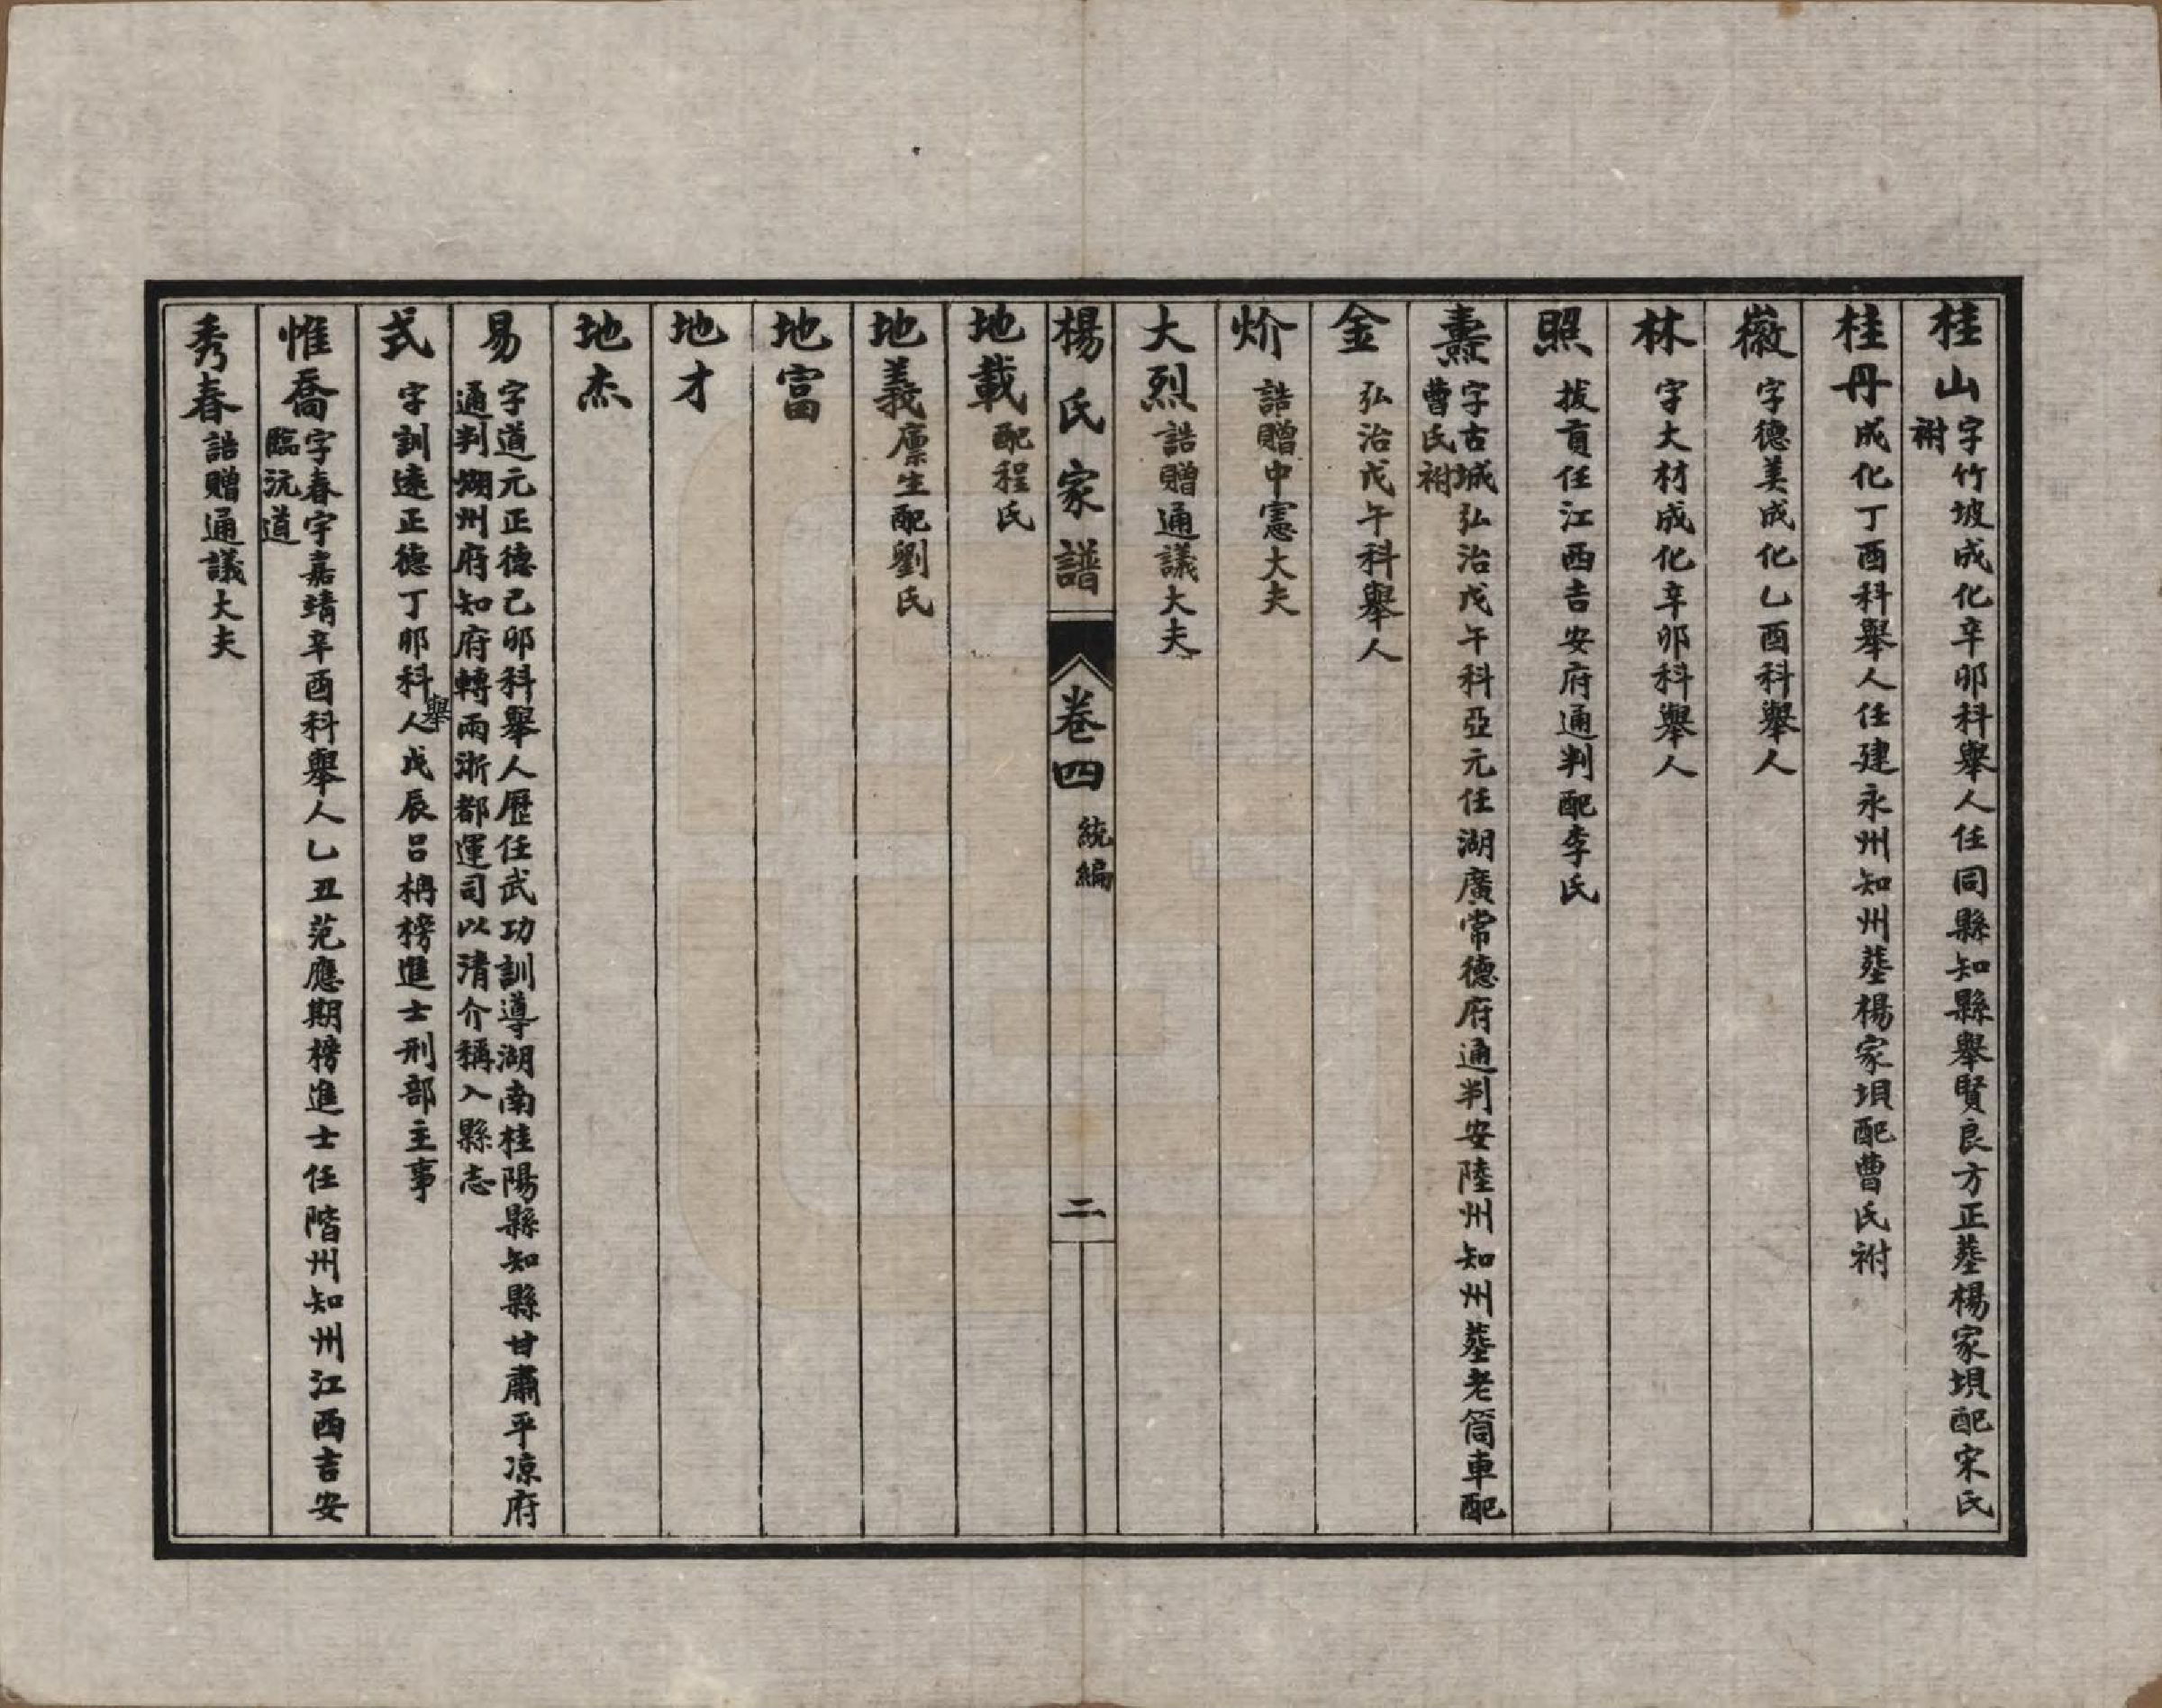 桂山字竹坡成化辛卯科舉人任同縣知縣舉賢良方正塟楊家垻配宋氏
祔
桂丹成化丁酉科舉人任建永州知州塟楊家垻配曹氏祔
徽字德美成化乙酉科舉人
林字大材成化辛卯科舉人
照拔貢任江西吉安府通判配李氏
燾字古城弘治戊午科亞元任湖廣常德府通判安陸州知州塟老筒車配
曹氏祔
金弘治戊午科舉人
炌誥贈中憲大夫
大烈誥贈通議大夫
楊氏家譜 卷四 統編 二
地載配程氏
地義廪生配劉氏
地富
地才
地杰
易字道元正德己卯科舉人歷任武功訓導湖南桂陽縣知縣甘肅平凉府
通判湖州府知府轉兩浙都運司以清介稱入縣志
式字訓遠正德丁卯科舉人戊辰吕柟榜進士刑部主事
惟喬字春宇嘉靖辛酉科舉人乙丑范應期榜進士任階州知州江西吉安
臨沅道
秀春誥贈通議大夫